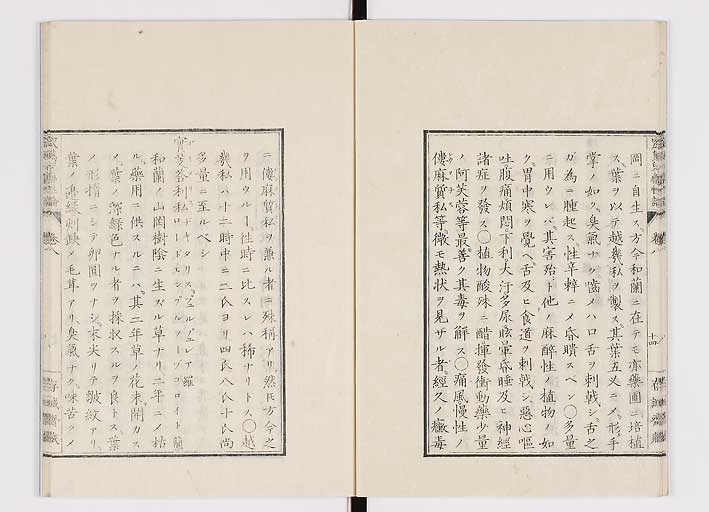 岡ニ自生ス、方今和蘭ニ在テモ亦藥圃ニ培植
ス、葉ヲ以テ越幾私ヲ製ス、其葉五尖ニメ、形手
掌ノ如ク、臭氣ナク嚙メハ口舌ヲ刺戟シ、舌之
カ為ニ腫起ス、性辛辢ニメ昏瞶スベシ〇多量
ニ用ウレハ、其害殆ト他ノ麻醉性ノ植物ノ如
ク、胃中寒ヲ覺ヘ舌及ヒ食道ヲ刺戟シ、惡心嘔
吐腹痛煩悶下利大汗多尿眩暈昏睡及ヒ神經
諸症ヲ發ス〇植物酸殊ニ醋揮發衝動藥少量
ノ阿芙蓉等最善ク其毒ヲ解ス〇痛風慢性ノ
僂麻質私等微モ熱状ヲ見ザル者、經久ノ黴毒
ニ僂麻質私ヲ兼ル者ニ殊稱アリ、然モ方今之
ヲ用ウル、往時ニ比スレハ稀ナリトス〇越
幾私ハ十二時中ニ二氏ヨリ四氏八氏十氏尚
多量ニ至ルベシ
實芰荅利私
和蘭ノ山岡樹陰ニ生スル草ナリ二年ニメ枯
ル、藥用ニ供スルニハ、其二年草ノ花未開カス
メ、葉ノ深緑色ナル者ヲ採収スルヲ良トス、葉
ノ形橢ニシテ卵圓ヲナシ、末尖リテ皺紋アリ、
葉ノ邊縁刺鋏メ毛茸アリ臭氣ナク味苦クメ